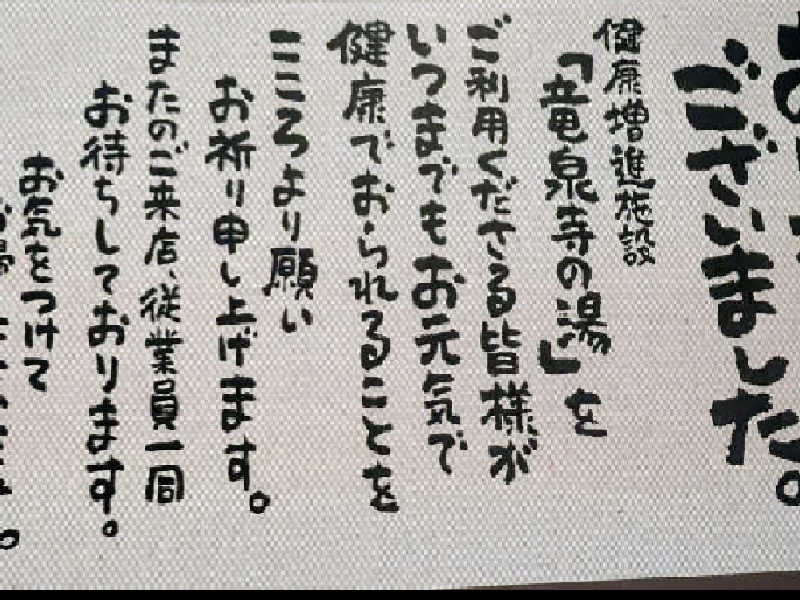 ございました。
健康増進施設
「竜泉寺の湯」を
ご利用くださる皆様が
いつまでもお元気で
健康でおられることを
こころより願い
お祈り申し上げます。
またのご来店、従業員一同
お待ちしております。
お気をつけて